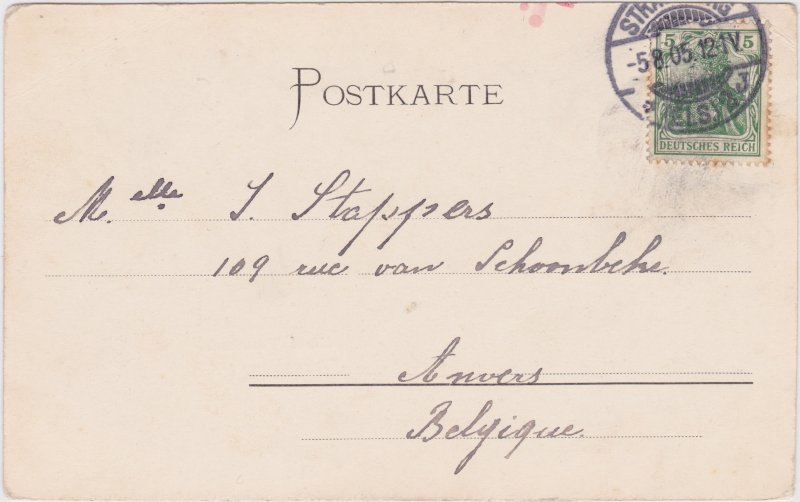 STRASSBURG
-5.8.05.12-1V.
(ELS.) J
5 5
DEUTSCHES REICH
POSTKARTE
M.elle J. Stappers
109 rue van Schoonbeke.
Anvers
Belgique.